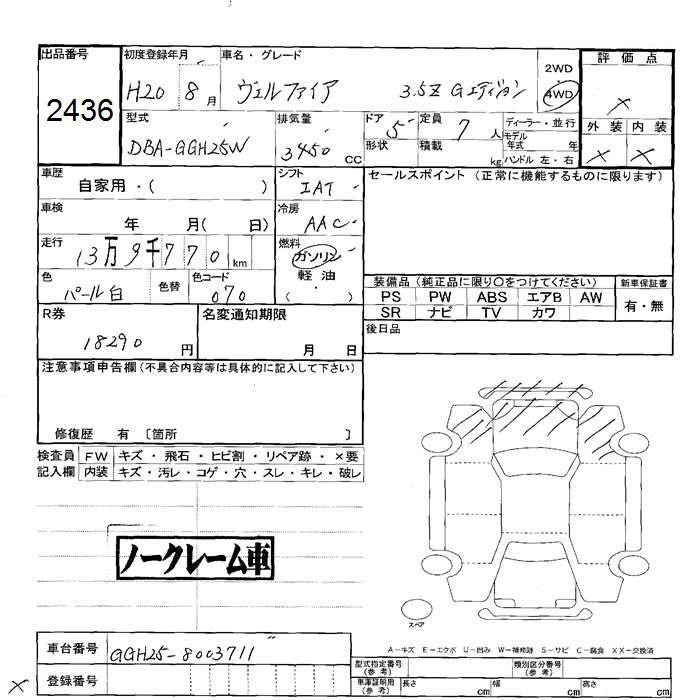 出品番号
2436
初度登録年月
H20 8月
車名・グレード
ヴェルファイア 3.5Z Gエディション
2WD
4WD
評価点
×
外装 内装
× ×
型式
DBA-GGH25W
排気量
3450 CC
ドア
5
形状
定員
7人
積載
kg
ディーラー・並行
モデル年式 年
ハンドル 左・右
車歴
自家用・( )
シフト
IAT
車検
年 月( 日)
冷房
AAC
走行
13万9千770km
燃料
ガソリン
軽油
・
( )
色
パール白
色替
色コード
070
R券
18290円
名変通知期限
月 日
セールスポイント(正常に機能するものに限ります)
装備品(純正品に限り○をつけてください)
PS PW ABS エアB AW
SR ナビ TV カワ
新車保証書
有・無
後日品
注意事項申告欄(不具合内容等は具体的に記入して下さい)
修復歴 有 〔箇所 〕
検査員記入欄
FW キズ・飛石・ヒビ割・リペア跡・×要
内装 キズ・汚レ・コゲ・穴・スレ・キレ・破レ
ノークレーム車
スペア
A−キズ E−エクボ U−凹み W−補修跡 S−サビ C−腐食 XX−交換済
車台番号
GGH25-8003711
登録番号
×
型式指定番号(参考)
類別区分番号(参考)
車庫証明用(参考)
長さ cm 幅 cm 高さ cm